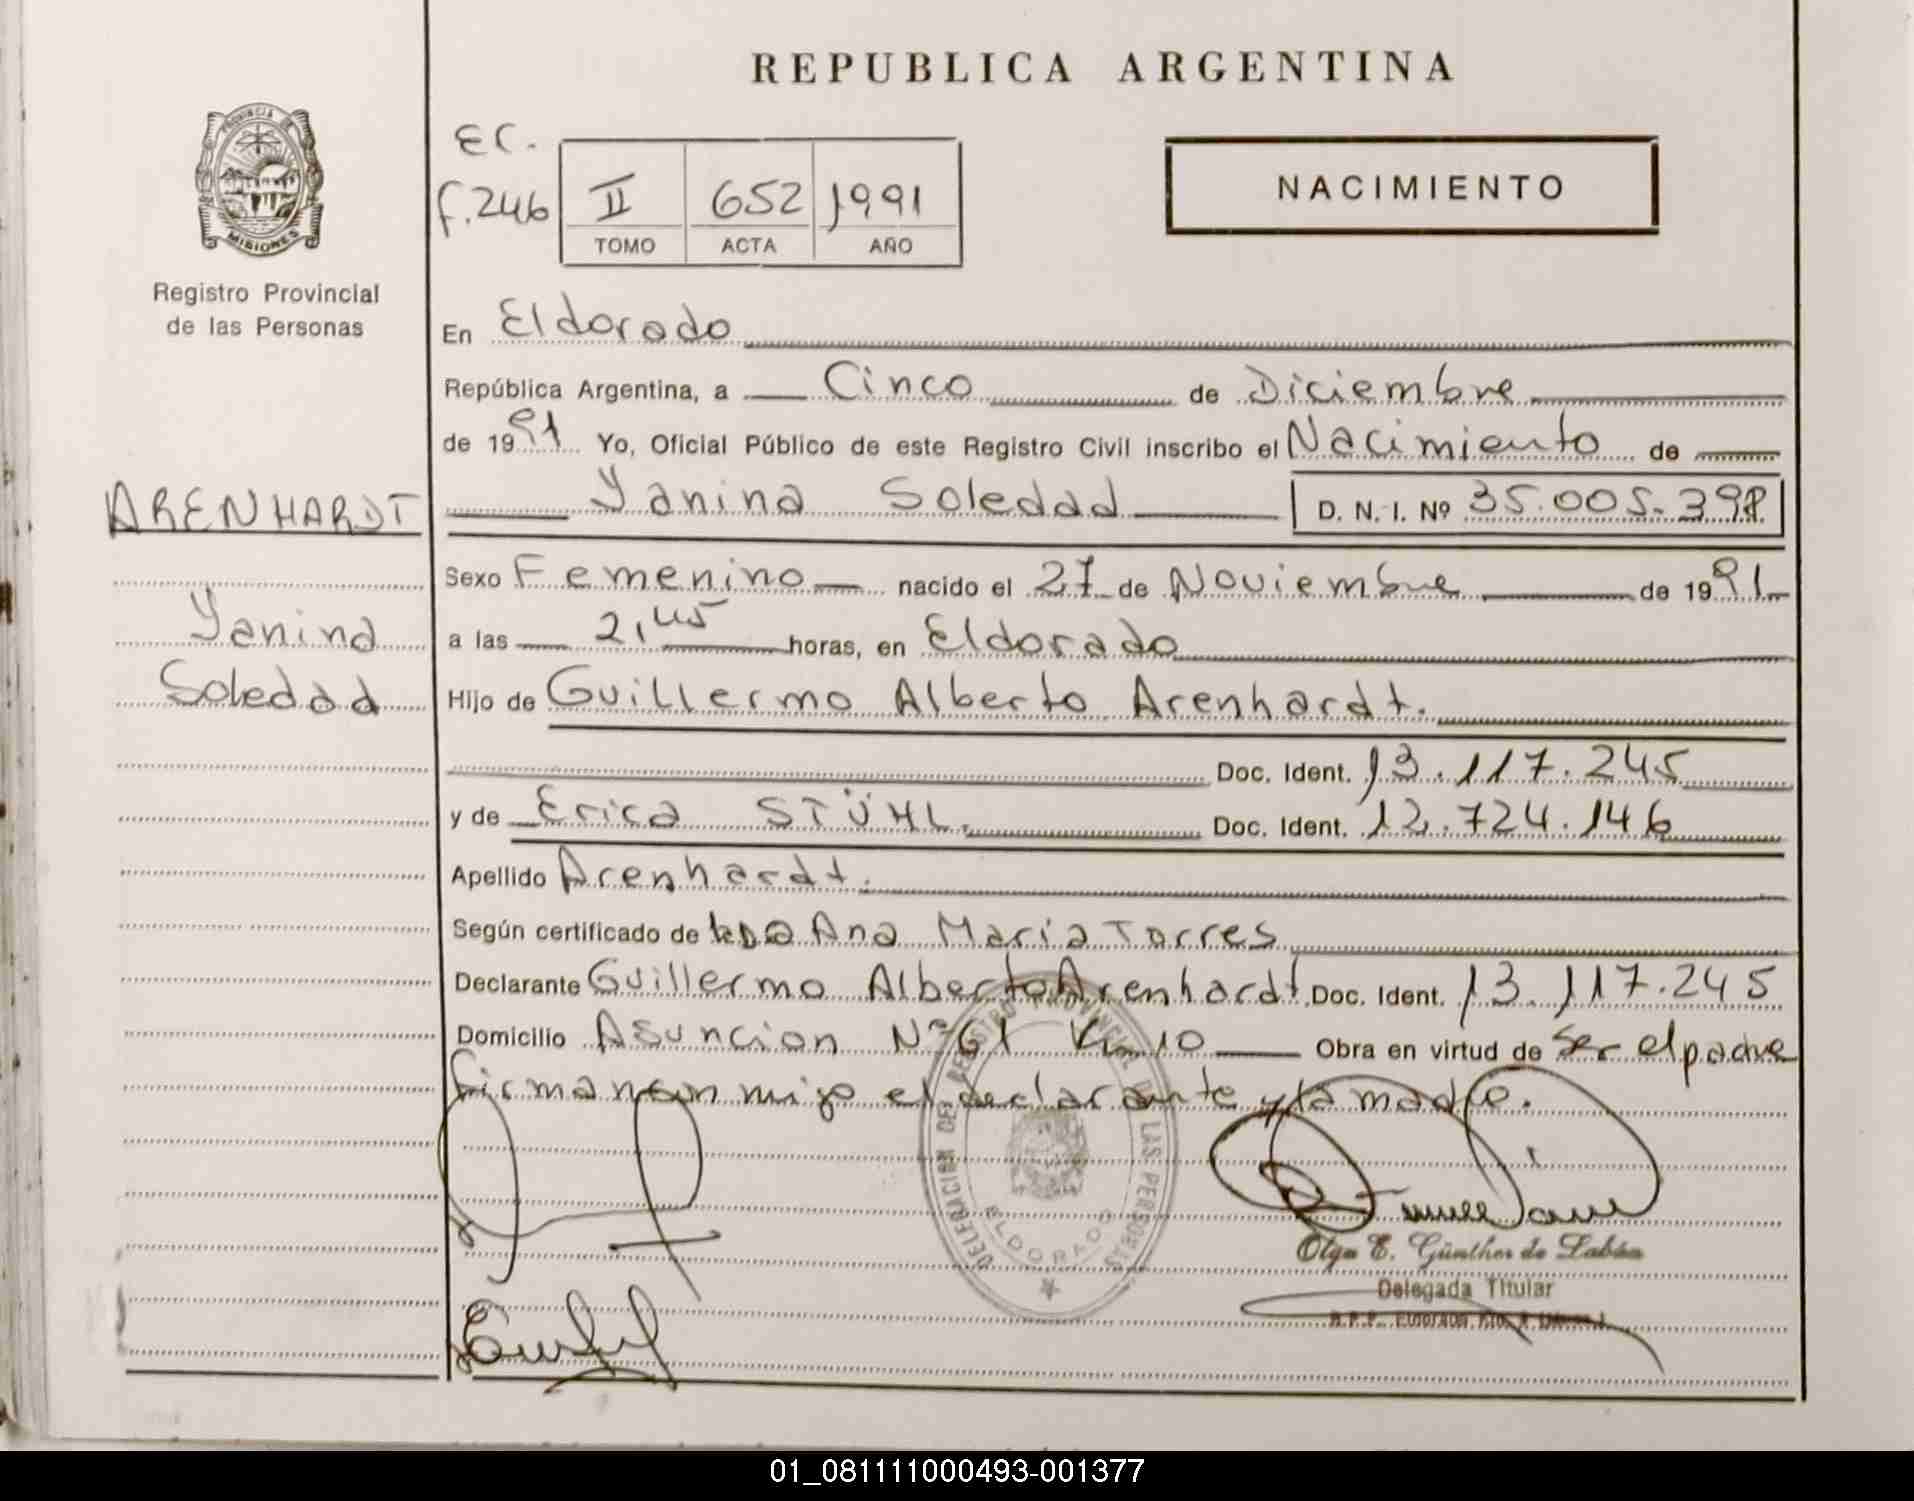 REPUBLICA ARGENTINA
PROVINCIA DE
MISIONES
Registro Provincial
de las Personas
EC.
f.246
II 652 1991
TOMO ACTA AÑO
NACIMIENTO
En Eldorado
República Argentina, a Cinco de Diciembre
de 1991 Yo, Oficial Público de este Registro Civil inscribo el Nacimiento de
ARENHARDT
Yanina Soledad D. N. I. Nº 35.005.398
Sexo Femenino nacido el 27 de Noviembre de 1991
Yanina
Soledad
a las 2,45 horas, en Eldorado
Hijo de Guillermo Alberto Arenhardt.
Doc. Ident. 13.117.245
y de Erica STÜHL. Doc. Ident. 12.724.146
Apellido Arenhardt.
Según certificado de Ana Maria Torres
Declarante Guillermo Alberto Arenhardt Doc. Ident. 13.117.245
Domicilio Asuncion Nº 61 Km 10 Obra en virtud de ser el padre
firman con migo el declarante y la madre.
DELEGACION DEL REGISTRO PROVINCIAL DE LAS PERSONAS
ELDORADO
Olga E. Günther de Labán
Delegada Titular
01_081111000493-001377